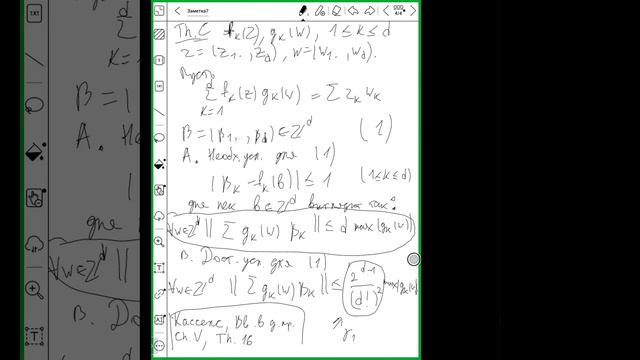 Заметка7
4/4
Th. C f_k(z), g_k(w), 1 ≤ k ≤ d
z = (z_1.., z_d), w = (w_1.., w_d).
Пусть
d
∑ f_k(z) g_k(w) = ∑ z_k w_k
k=1
β = (β_1.., β_d) ∈ ℤ^d (1)
А. Необх. усл. для (1)
|β_k - f_k(b)| ≤ 1 (1≤k≤d)
для нек b ∈ ℤ^d выглядит так:
∀w∈ℤ^d || ∑ g_k(w) β_k || ≤ d max |g_k(w)|
В. Дост. усл для (1)
∀w∈ℤ^d || ∑ g_k(w) β_k || ≤ 2^{d-1}/(d!)^2 max |g_k(w)|
Касселс, Вв. в д. пр.
Ch. V, Th. 16
⇒ γ_1